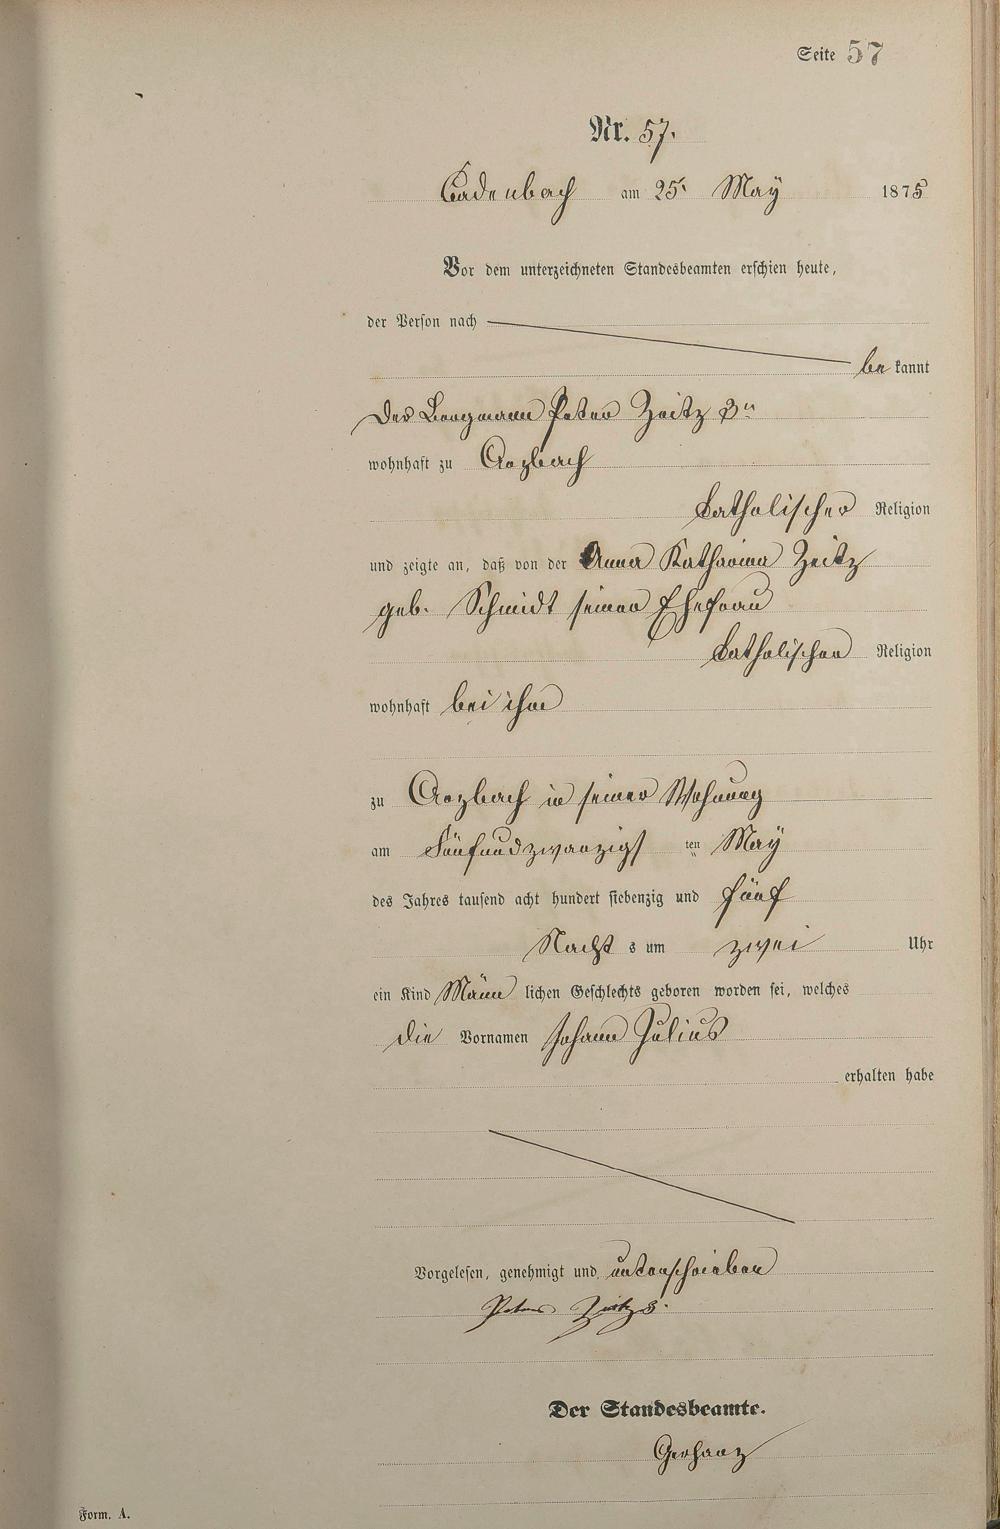 Seite 57
Nr. 57.
Cadenbach am 25. May 1875
Vor dem unterzeichneten Standesbeamten erschien heute,
der Person nach
bekannt
Der Bergmann Peter Zeitz 3r
wohnhaft zu Arzbach
katholischer Religion
und zeigte an, daß von der Anna Katharina Zeitz
geb. Schmidt seiner Ehefrau
katholischer Religion
wohnhaft bei ihm
zu Arzbach in seiner Wohnung
am Fünfundzwanzigsten May
des Jahres tausend acht hundert siebenzig und fünf
Nachts um zwei Uhr
ein Kind Männlichen Geschlechts geboren worden sei, welches
die Vornamen Johann Julius
erhalten habe
Vorgelesen, genehmigt und unterschrieben
Peter Zeitz 3.
Der Standesbeamte.
Gerhanz
Form. A.